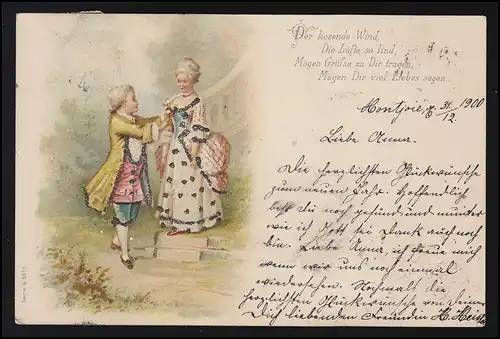 Der kosende Wind,
Die Lüfte so lind,
Mögen Grüße zu Dir tragen,
Mögen Dir viel Liebes sagen.
Montjoie, d. 31./12. 1900
Liebe Anna.
Die herzlichsten Glückwünsche
zum neuen Jahr. Hoffendlich
bist du noch gesund und munter
wie ich Gott sei Dank auch noch
bin. Liebe Anna, ich freue mich
wenn wir uns noch einmal
wiedersehen. Nochmals die
herzlichsten Glückwünsche von Deiner
Dich liebenden Freundin H.
Serie